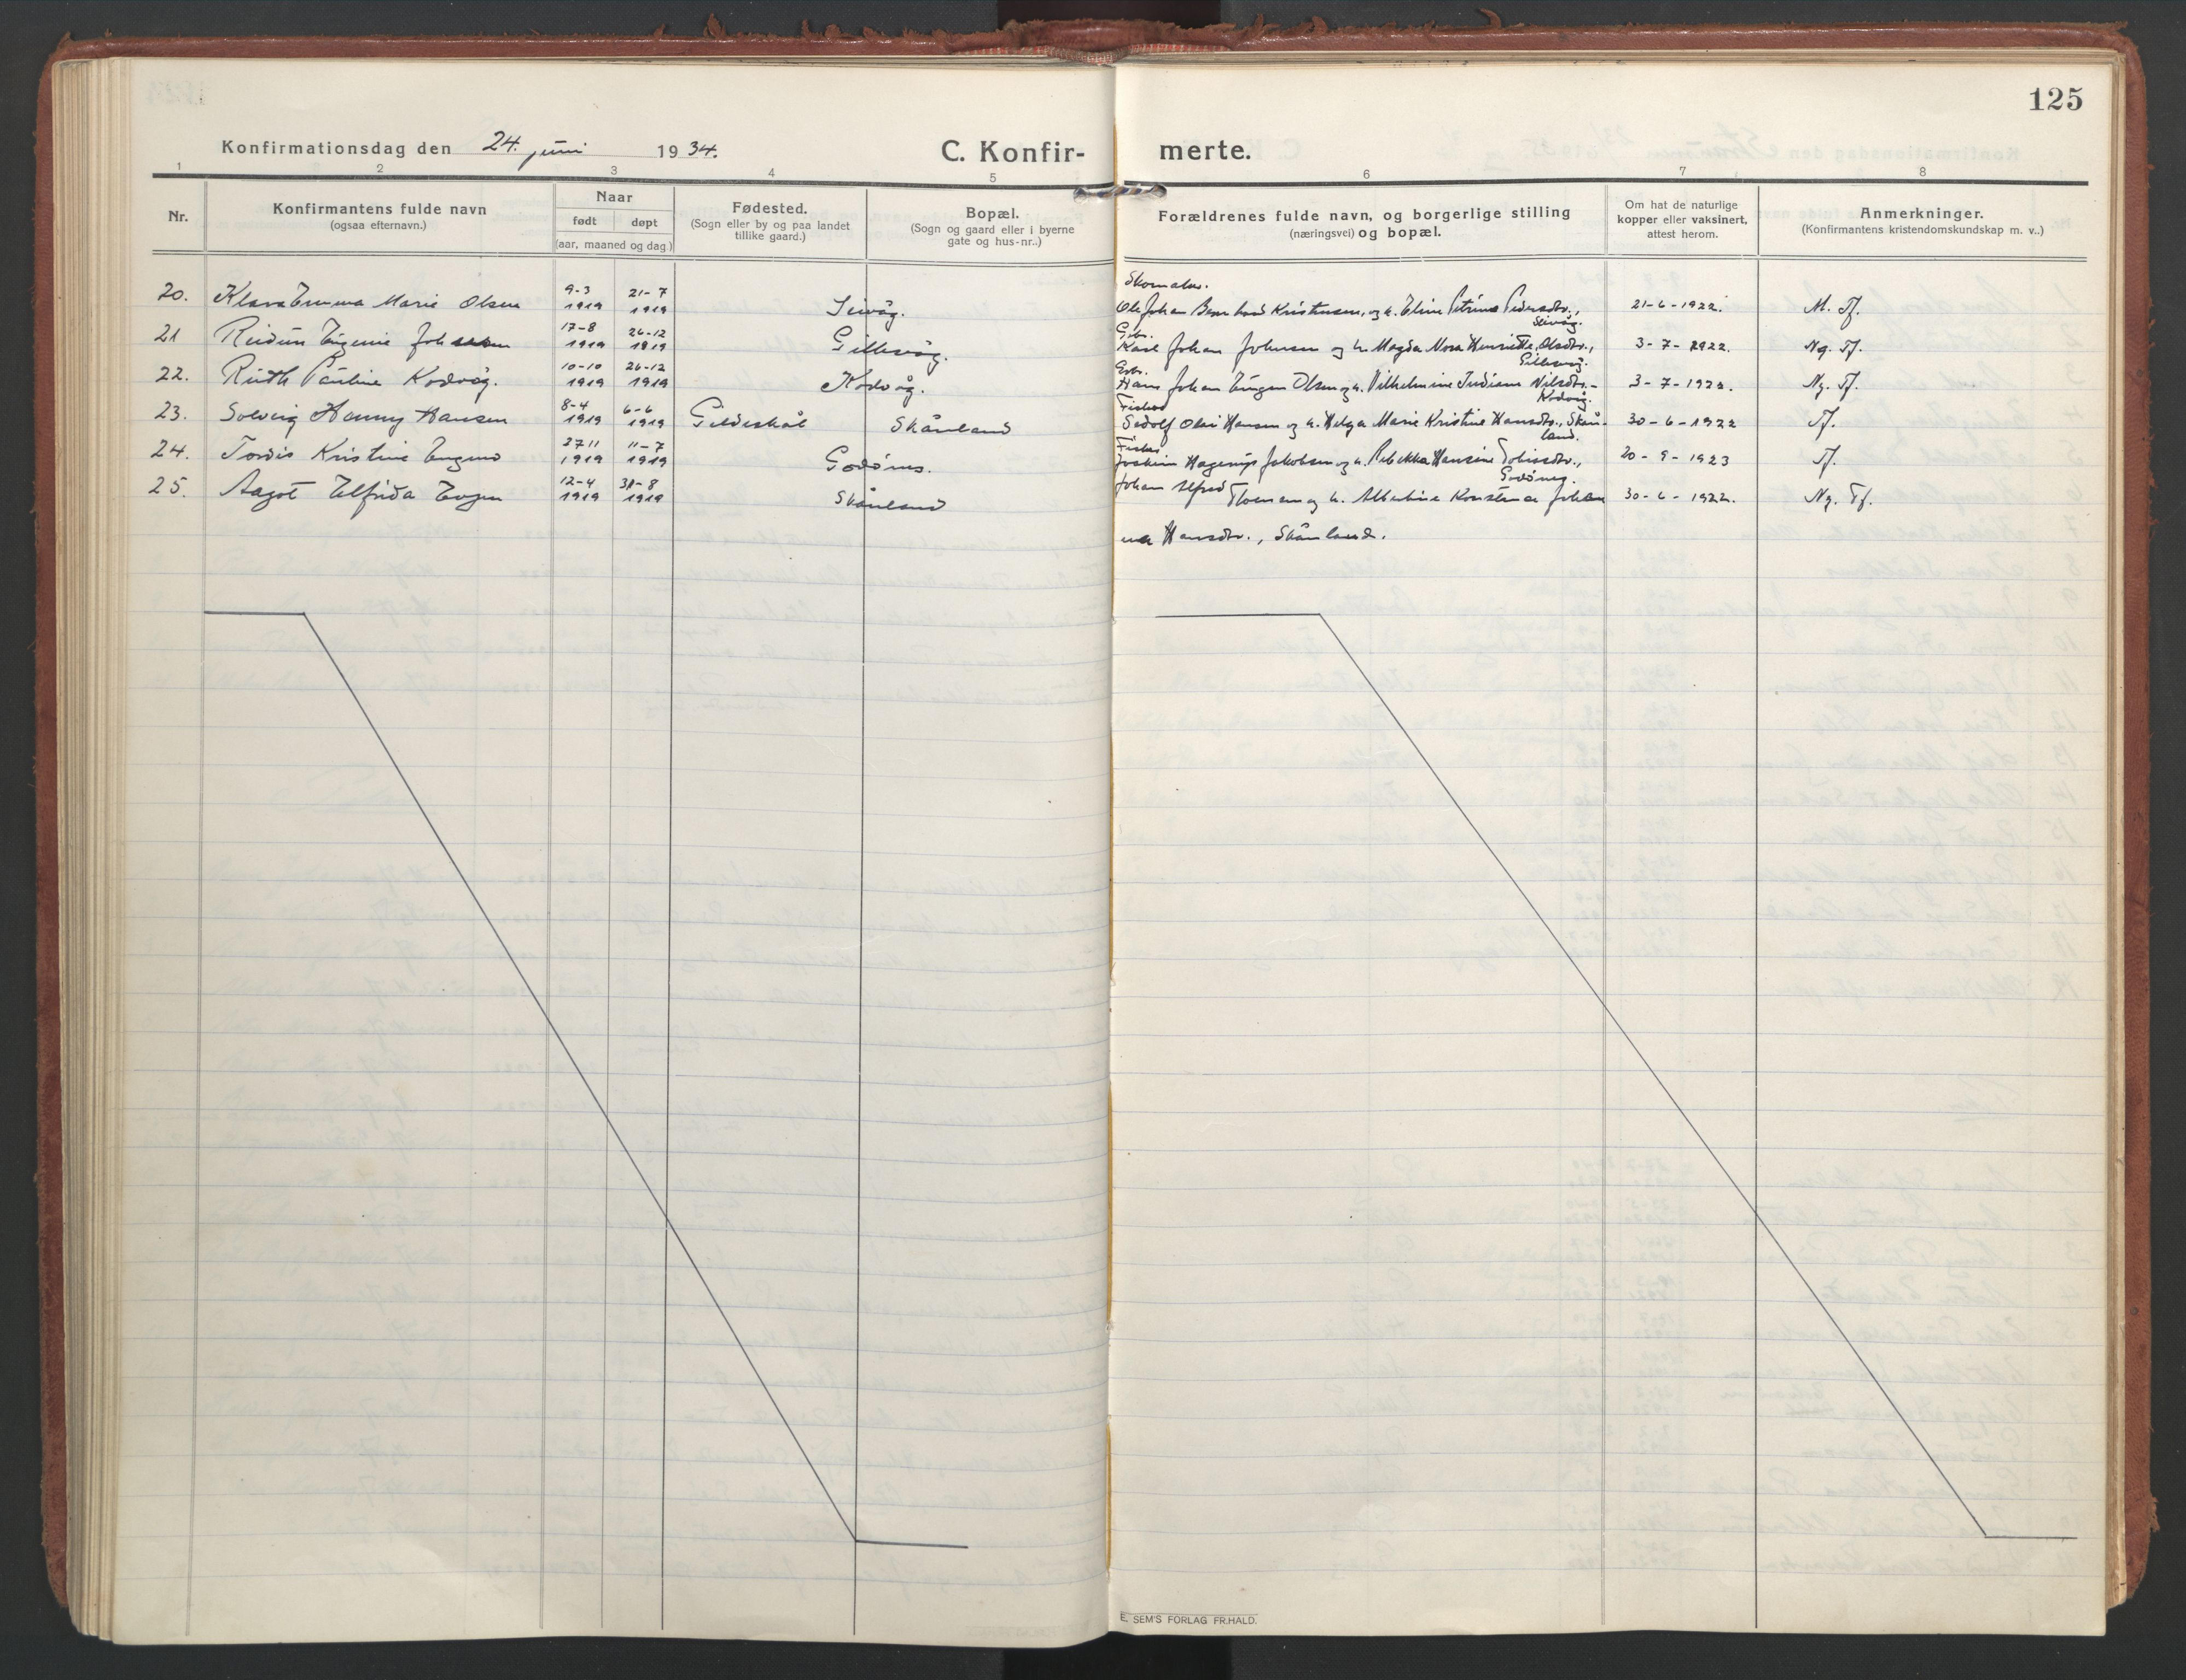 125
Konfirmationsdag den 24. juni 1934.
C. Konfirmerte.
1 2 3 4 5 6 7 8
Nr.
Konfirmantens fulde navn
(ogsaa efternavn.)
Naar
født døpt
(aar, maaned og dag.)
Fødested.
(Sogn eller by og paa landet
tillike gaard.)
Bopæl.
(Sogn og gaard eller i byerne
gate og hus-nr..)
Forældrenes fulde navn, og borgerlige stilling
(næringsvei) og bopæl.
Om hat de naturlige
kopper eller vaksinert,
attest herom.
Anmerkninger.
(Konfirmantens kristendomskundskap m. v..)
Skomaker.
20. Klara Emma Marie Olsen 9-3 1919 21-7 1919 Seivåg. Ole Johan Bernhard Kristensen, og h. Eline Petrine Pedersdtr., Seivåg. 21-6-1922. M. Tf.
Gbr.
21 Reidun Eugenie Johnsen 17-8 1919 26-12 1919 Gillesvåg. Karl Johan Johnsen og h. Magda Nora Henriette Olsdtr., Gillesvåg. 3-7-1922. Ng. Tf.
Gbr.
22. Ruth Pauline Kodvåg. 10-10 1919 26-12 1919 Kodvåg. Hans Johan Eugen Olsen og h. Vilhelmine Indiane Nilsdtr.- Kodvåg. 3-7-1922. Ng. Tf.
Fisker
23. Solveig Hanny Hansen 8-4 1919 6-6 1919 Gildeskål Skånland Sadolf Olai Hansen og h. Helga Marie Kristine Hansdtr., Skånland. 30-6-1922 Tf.
Fisker
24. Tordis Kristine Engmo 27 11 1919 11-7 1919 Godønes. Joakim Hagerup Jakobsen og h. Rebekka Hansine Tobiasdtr., Godønes. 20-9-1923 Tf.
25. Aagot Elfrida Evgen 12-4 1919 31-8 1919 Skånland Johan Alfred Thomassen og h. Albertine Konstanse Johan 30-6-1922. Ng. Tf.
na Hansdtr., Skånland.
E. SEM'S FORLAG FR.HALD.